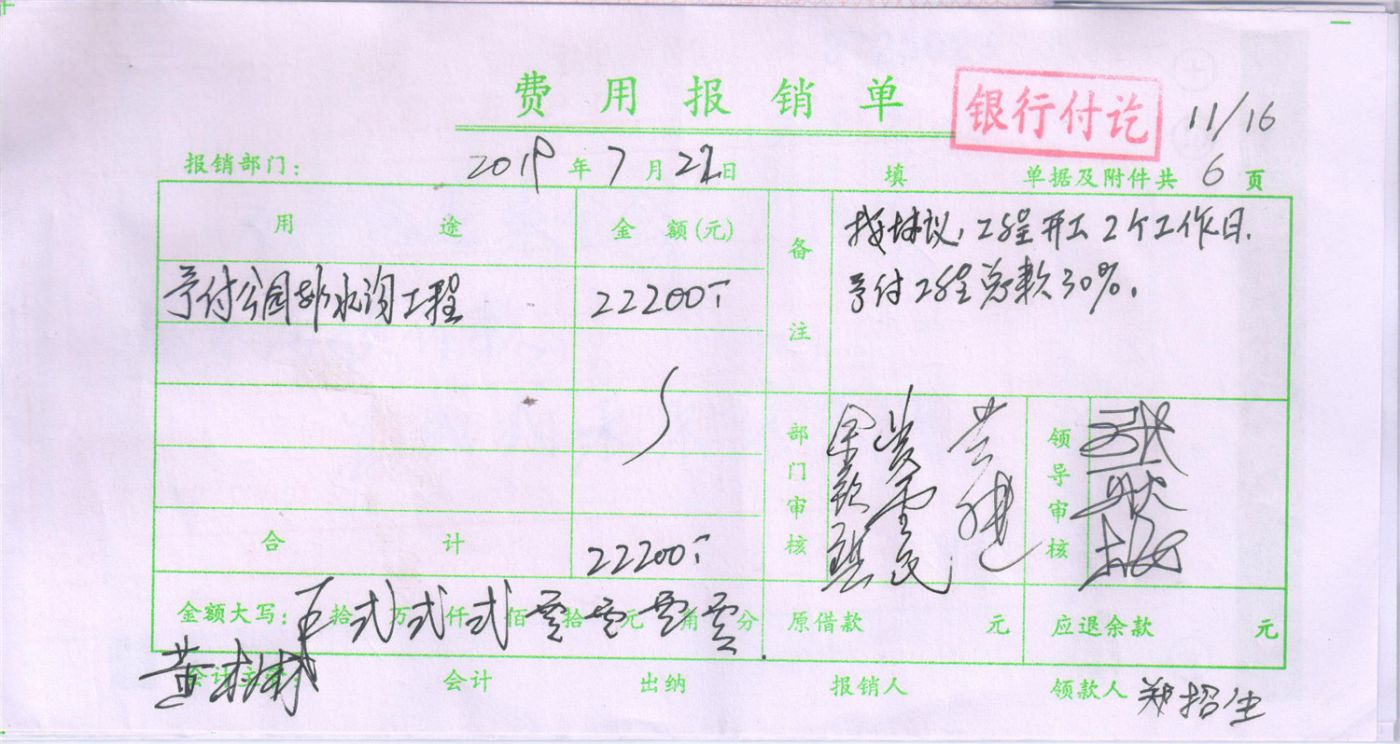 费用报销单
银行付讫
11/16
报销部门： 2019 年 7 月 22 日 填 单据及附件共 6 页
用途 金额(元) 备注
按协议，工程开工2个工作日，
予付工程总款30%.
予付公园排水沟工程 22200
部门审核 领导审核
合计 22200
金额大写： 拾 弍 万 弍 仟 弍 佰 零 拾 零 元 零 角 零 分 原借款 元 应退余款 元
会计 出纳 报销人 领款人 郑招生